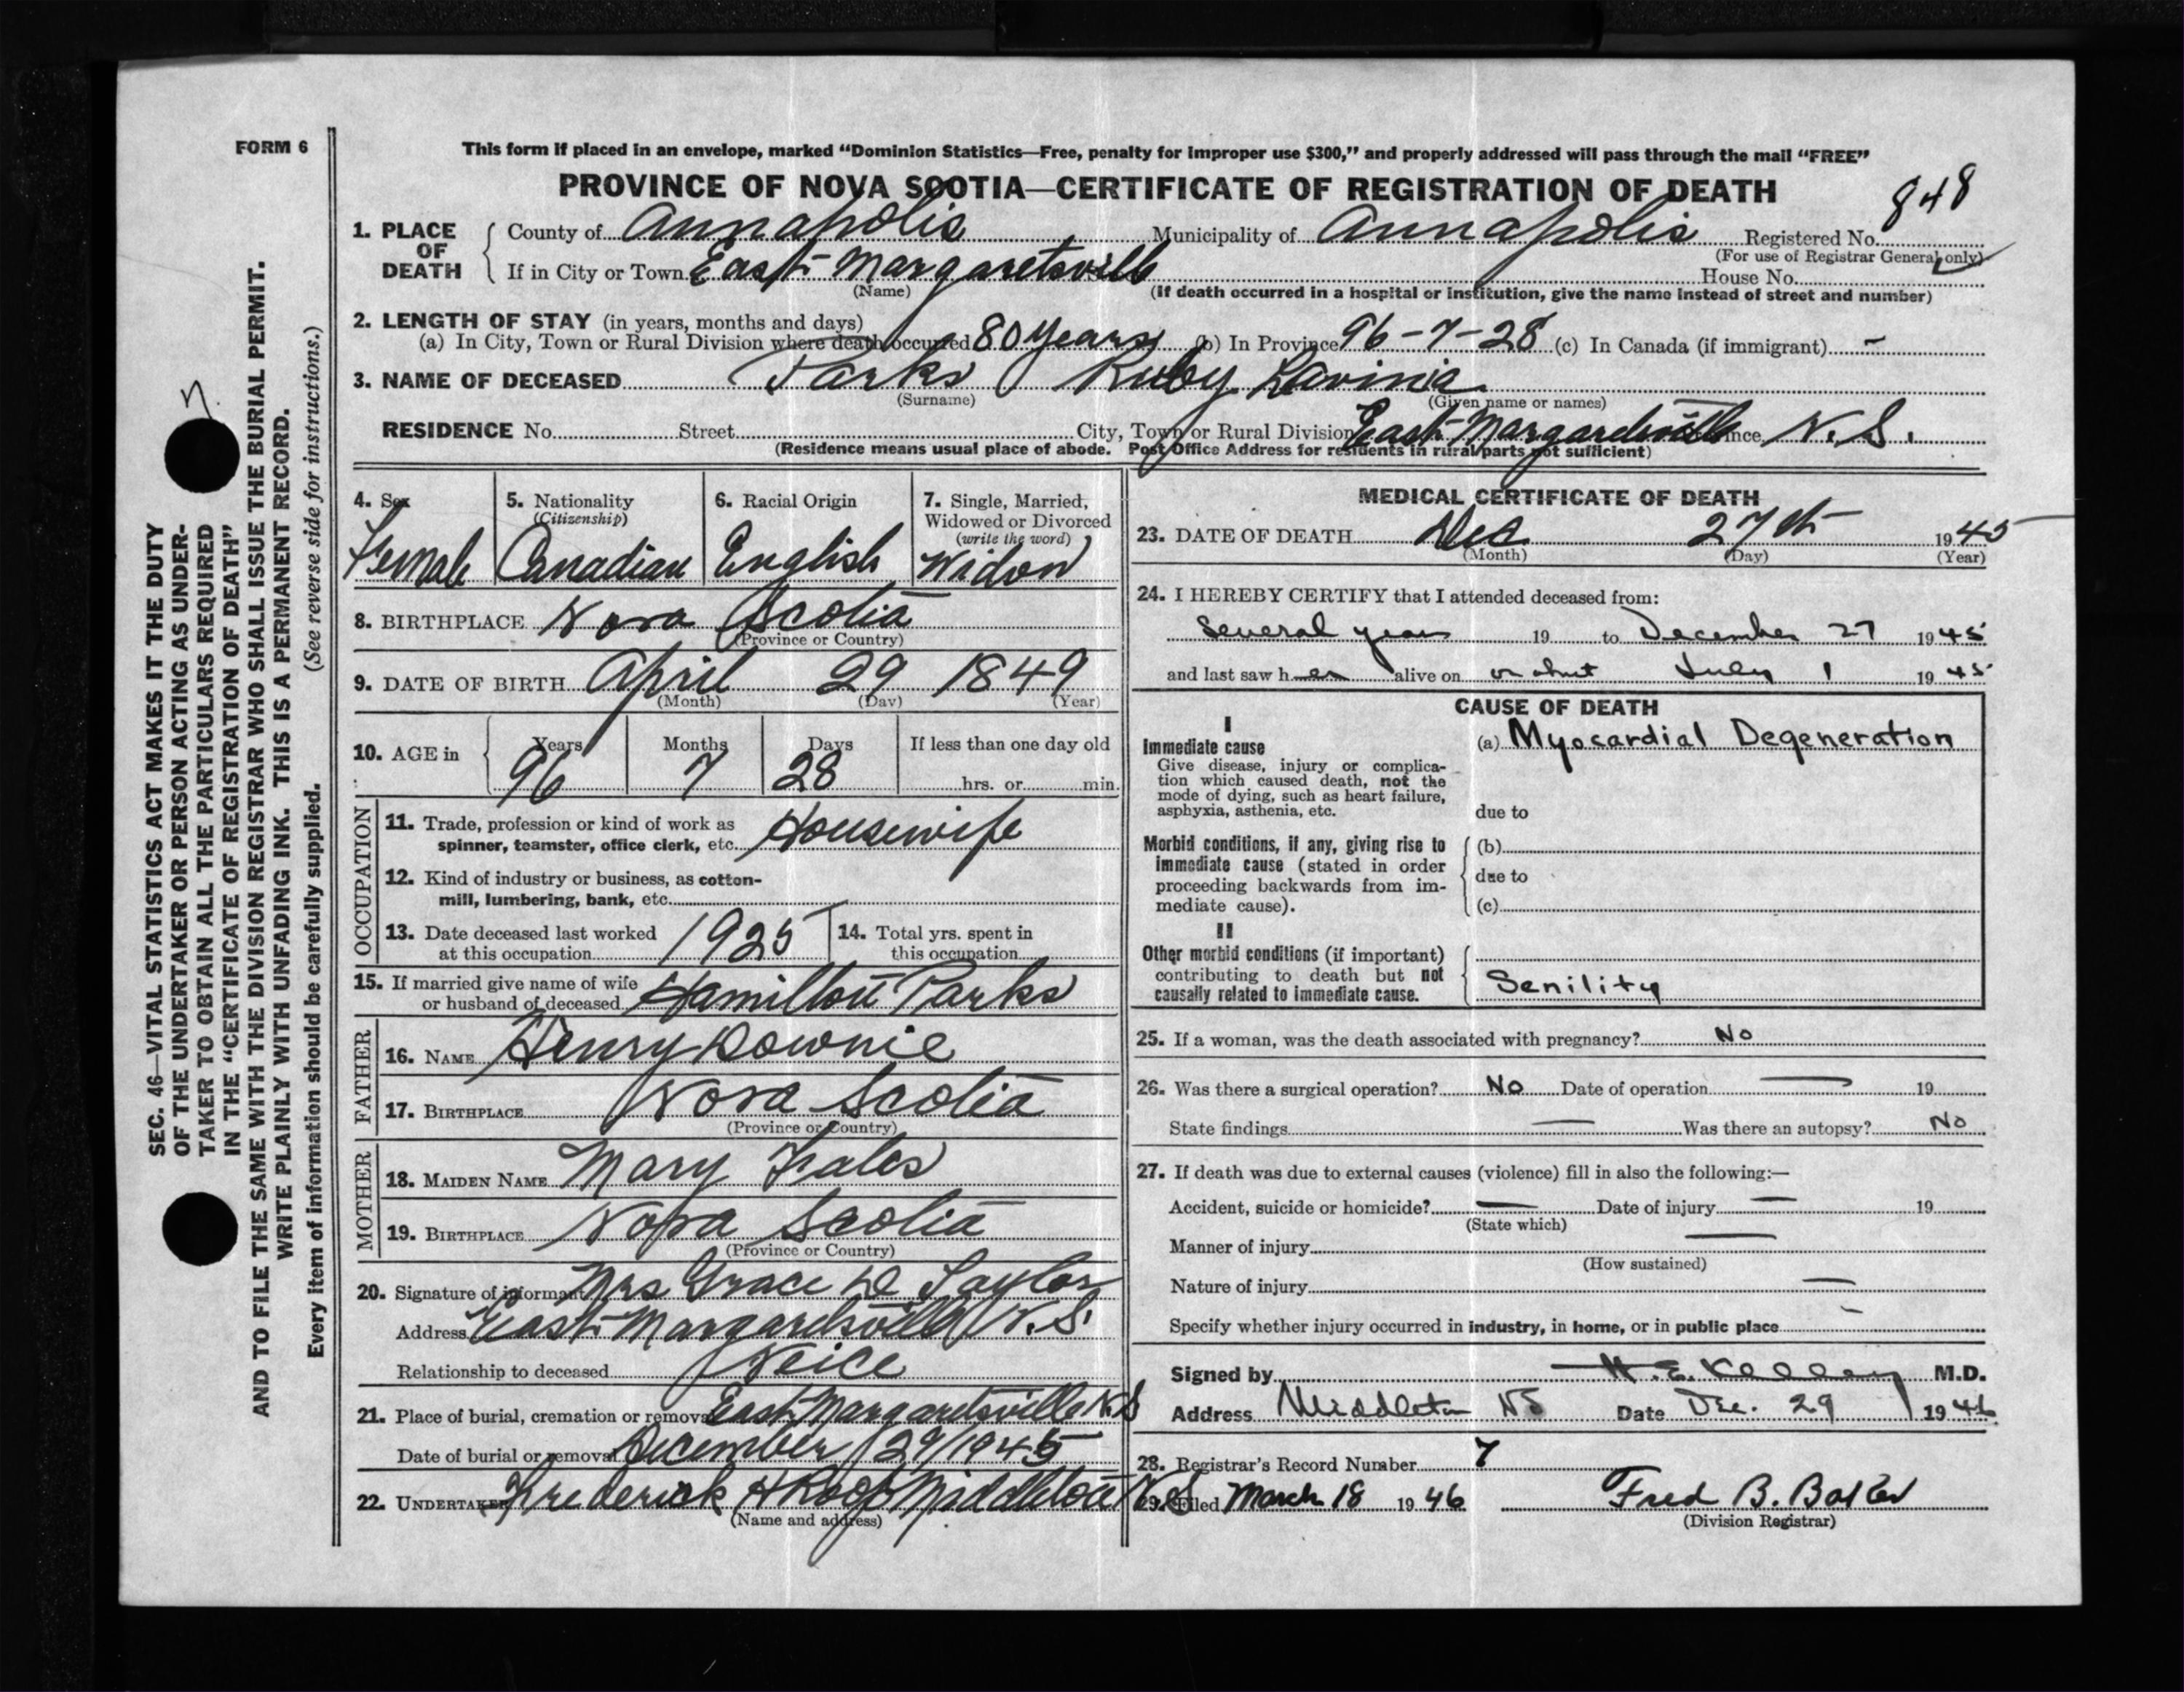 FORM 6
This form if placed in an envelope, marked “Dominion Statistics—Free, penalty for improper use $300,” and properly addressed will pass through the mail “FREE”
PROVINCE OF NOVA SCOTIA—CERTIFICATE OF REGISTRATION OF DEATH
848
1. PLACE OF DEATH
County of Annapolis Municipality of Annapolis Registered No.
(For use of Registrar General only)
If in City or Town East Margaretsville House No.
(Name) (If death occurred in a hospital or institution, give the name instead of street and number)
2. LENGTH OF STAY (in years, months and days)
(a) In City, Town or Rural Division where death occurred 80 years (b) In Province 96-7-28 (c) In Canada (if immigrant) -
3. NAME OF DECEASED Parks Ruby Lavinia
(Surname) (Given name or names)
RESIDENCE No. Street City, Town or Rural Division East Margaretsville N.S.
(Residence means usual place of abode. Post Office Address for residents in rural parts not sufficient)
4. Sex Female
5. Nationality
(Citizenship)
Canadian
6. Racial Origin
English
7. Single, Married,
Widowed or Divorced
(write the word)
Widow
8. BIRTHPLACE Nova Scotia
(Province or Country)
9. DATE OF BIRTH April 29 1849
(Month) (Day) (Year)
10. AGE in
Years Months Days If less than one day old
96 7 28 hrs. or min.
OCCUPATION
11. Trade, profession or kind of work as
spinner, teamster, office clerk, etc. Housewife
12. Kind of industry or business, as cotton-
mill, lumbering, bank, etc.
13. Date deceased last worked
at this occupation 1925
14. Total yrs. spent in
this occupation
15. If married give name of wife
or husband of deceased Hamilton Parks
FATHER
16. NAME Henry Downie
17. BIRTHPLACE Nova Scotia
(Province or Country)
MOTHER
18. MAIDEN NAME Mary Fales
19. BIRTHPLACE Nova Scotia
(Province or Country)
20. Signature of informant Mrs Grace D Taylor
Address East Margaretsville N.S.
Relationship to deceased Neice
21. Place of burial, cremation or removal East Margaretsville N.S
Date of burial or removal December 29/1945
22. UNDERTAKER Frederick H Roop Middleton N.S
(Name and address)
MEDICAL CERTIFICATE OF DEATH
23. DATE OF DEATH Dec 27th 1945
(Month) (Day) (Year)
24. I HEREBY CERTIFY that I attended deceased from:
Several years 19 to December 27 1945
and last saw her alive on or about July 1 1945
CAUSE OF DEATH
I
Immediate cause
Give disease, injury or complica-
tion which caused death, not the
mode of dying, such as heart failure,
asphyxia, asthenia, etc.
(a) Myocardial Degeneration
due to
Morbid conditions, if any, giving rise to
immediate cause (stated in order
proceeding backwards from im-
mediate cause).
(b)
due to
(c)
II
Other morbid conditions (if important)
contributing to death but not
causally related to immediate cause.
Senility
25. If a woman, was the death associated with pregnancy? No
26. Was there a surgical operation? No Date of operation — 19
State findings — Was there an autopsy? No
27. If death was due to external causes (violence) fill in also the following:—
Accident, suicide or homicide? — Date of injury — 19
(State which)
Manner of injury —
(How sustained)
Nature of injury —
Specify whether injury occurred in industry, in home, or in public place -
Signed by H.E. Kelley M.D.
Address Middleton NS Date Dec. 29 1946
28. Registrar's Record Number 7
29. Filed March 18 1946 Fred B. Balcer
(Division Registrar)
SEC. 46—VITAL STATISTICS ACT MAKES IT THE DUTY
OF THE UNDERTAKER OR PERSON ACTING AS UNDER-
TAKER TO OBTAIN ALL THE PARTICULARS REQUIRED
IN THE “CERTIFICATE OF REGISTRATION OF DEATH”
AND TO FILE THE SAME WITH THE DIVISION REGISTRAR WHO SHALL ISSUE THE BURIAL PERMIT.
WRITE PLAINLY WITH UNFADING INK. THIS IS A PERMANENT RECORD.
Every item of information should be carefully supplied. (See reverse side for instructions.)